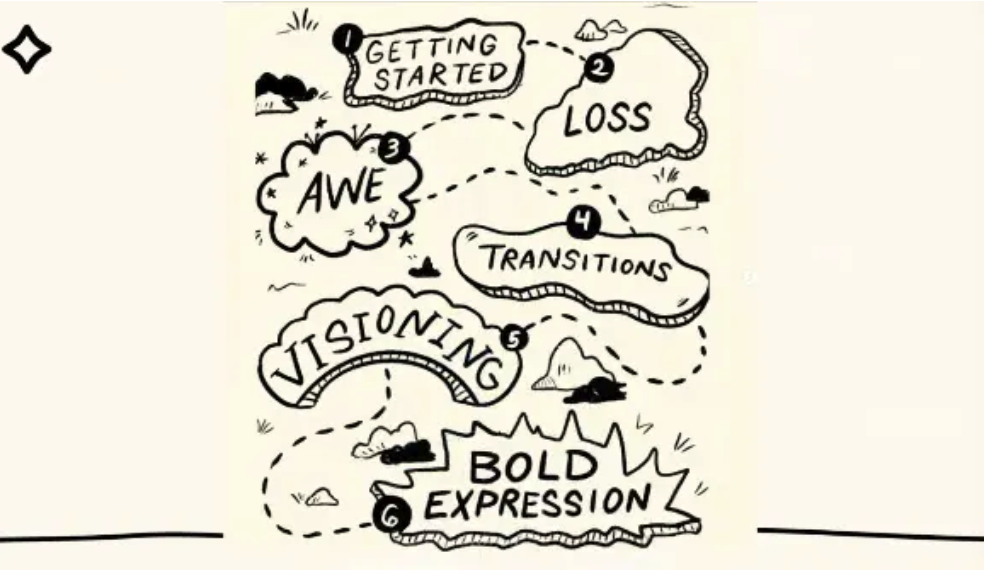 1 GETTING
STARTED
2
LOSS
3
AWE
4
TRANSITIONS
VISIONING 5
BOLD
EXPRESSION
6